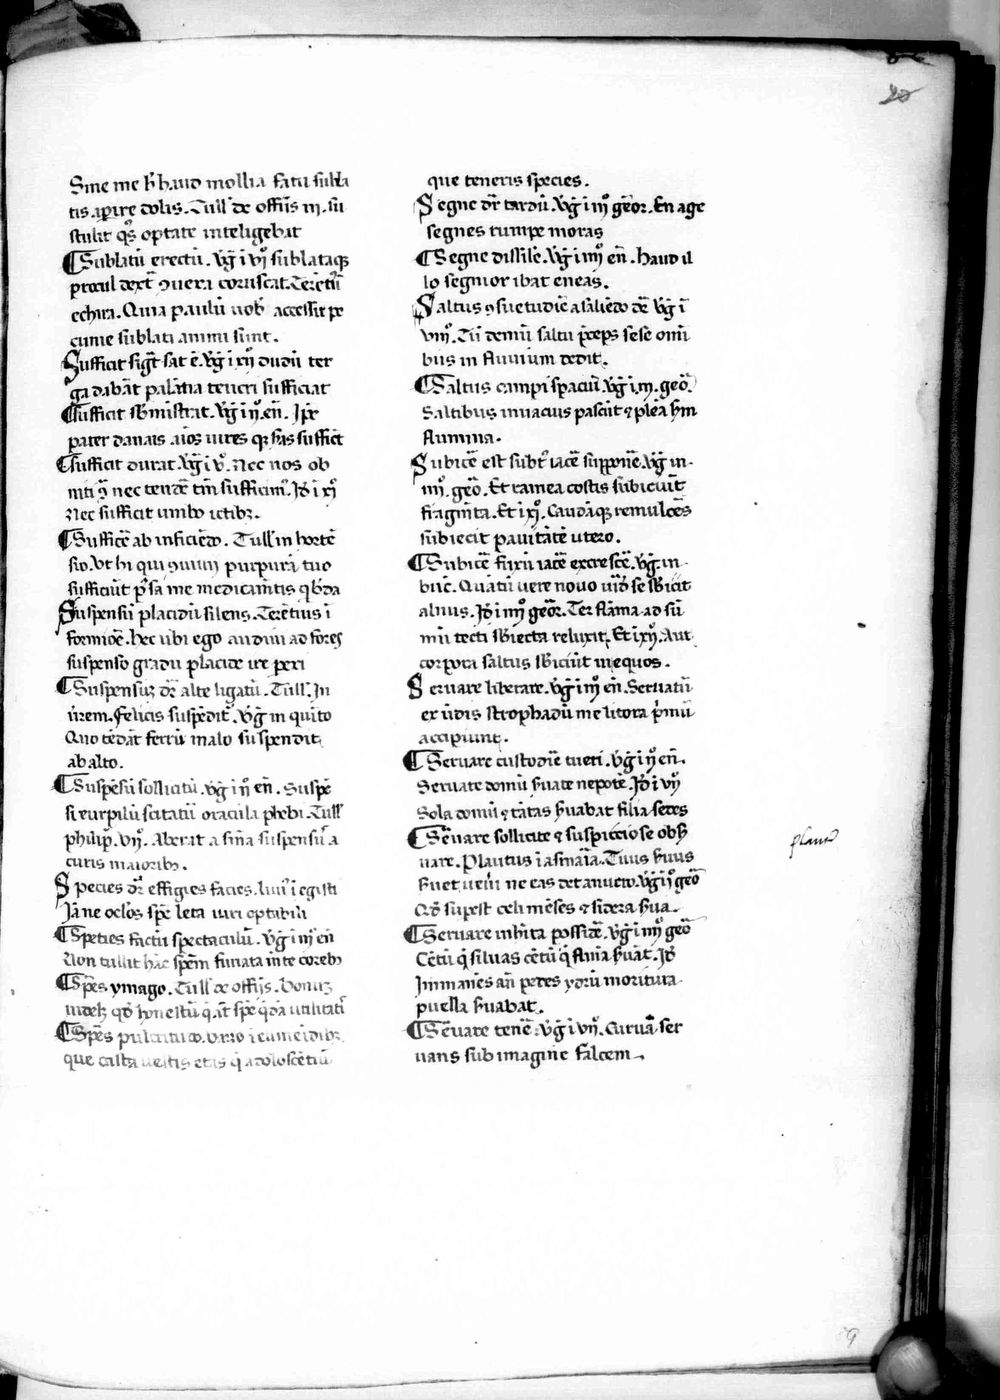 20
Sine me h̅ haud mollia fatu subla
tis aperire dolis. Tull' de offi̅s iii. su
stulit q̅s optate inteligebat
¶ Sublatu̅ erectu̅. v̅g i vi° sublataq;
procul dext͛ ꝯnixa coruscat. Tere̅ti'
echira. Quia paulu̅ uob̅ accessit pe
cunie sublati animi sunt.
Sufficit sig̅t sat e̅. v̅g i xii dudu̅ ter
ga daba̅t pala̅tia teucri sufficiat
¶ Sufficit sb̅mi̅strat. v̅g i ii° en̅. Ip̅e
pater danais aio̅s uires q; s̅as suffic̅t
¶ Sufficit durat. v̅g i v°. Nec nos ob
niti ꝯ̅ nec tende̅ tm̅ sufficim'. Id̅ i xi°
Nec sufficit umbo ictib;.
¶ Suffice̅ ab inficie̅do. Tull' in horte̅
sio. Vt hi qui
purpura̅ tuo
sufficiu̅t p̅ sa me medicam̅tis q̅b̅da
Suspensu̅ placidu̅ silens. Tere̅tius i̅
formioe̅. hec ubi ego audiui ad fores
suspenso gradu placide ire peri
¶ Suspensu; d̅r alte ligatu̅. Tull'. In
u̅rem. felicis suspe̅dit'. v̅g in qui̅to
Quo te̅da̅t ferru̅ malo suspendit
ab alto.
¶ Suspe̅su̅ sollicitu̅. v̅g i ii° en̅. Suspe̅
si eurpilu̅ scitatu̅ oracula phebi. Tull'
philip̅. vii°. Aberat a s̅n̅a suspensu̅ a
curis maiorib;.
Species d̅r effigies facies. liui' i egisti
Ia̅ne oclos spe̅ leta iuri optabili
¶ Speties factu̅ spectaculu̅. v̅g i iii° en̅
Non tullit ha̅c spe̅m furiata me̅te coreb;
¶ Sp̅es ymago. Tull' de offi̅s. Bonu;
uidelz qd̅ honestu̅ q̅ a̅t spe̅ q̅da̅ utilitati̅
¶ Sp̅es pulcritudo.
que casta uestis etas q̅ adolosce̅tiu̅
que teneris species.
Segne d̅r tardu̅. v̅g i iii° geor. En age
segnes rumpe moras
¶ Segne dissile. v̅g i iiii° en̅. haud il
lo segnior ibat eneas.
Saltus ꝯsuetudie̅ a salie̅do de̅ v̅g i̅
viiii°. Tu̅ demu̅ saltu p̅ceps sese omi̅
bus in fluuium dedit.
¶ Saltus campi spaciu̅ v̅g i iii. geo̅.
Saltibus in uacuis pascu̅t ⁊ ple̅a s̅m
flumina.
Subice̅ est subt' iace̅ suppone̅. v̅g in.
iiii°. geo̅. Et ramea costis subiciu̅t
fragm̅ta. Et i xi°. Cauda̅q; remulce̅s
subiecit pauita̅te̅ utero.
¶ Subice̅ frixu̅ iace̅ excresce̅. v̅g in.
buc̅. Qua̅tu̅ uere nouo ui̅d̅ se sb̅icit
alnus. Id̅ i iiii° geor̅. Ter fla̅ma ad su̅
mu̅ tecti sb̅iecta reluxit. Et i xii°. Aut
corpora saltus sb̅iciu̅t in equos.
Seruare liberare. v̅g i iii° en̅. Seruatu̅
ex u̅dis strophadu̅ me litora p̅mu̅
accipiunt.
¶ Seruare custodie̅ tueri. v̅g i ii° en̅.
Seruate domu̅ s̅uate nepote̅. Id̅ i vii°
Sola domu̅ ⁊ ta̅tas s̅uabat filia sedes
¶ Se̅uare sollicite ⁊ suspiccio se obs̅
uare. Plautus i asina̅ia. Tuus s̅uus
s̅uet ueni̅
v̅g i ii° geo̅
Qd̅ sup̅est celi me̅ses ⁊ sidera s̅ua.
¶ Seruare inh̅ita possid̅e. v̅g i iiii° geo̅
Ce̅tu̅ q̅ siluas ce̅tu̅ q̅ flui̅a s̅ua̅t. Id̅
Inmane̅s an̅ pedes ydru̅ moritura
puella s̅uabat.
¶ Se̅uare tene̅. v̅g i vii°. Curua̅ ser
uans sub imagine falcem.
plaut'